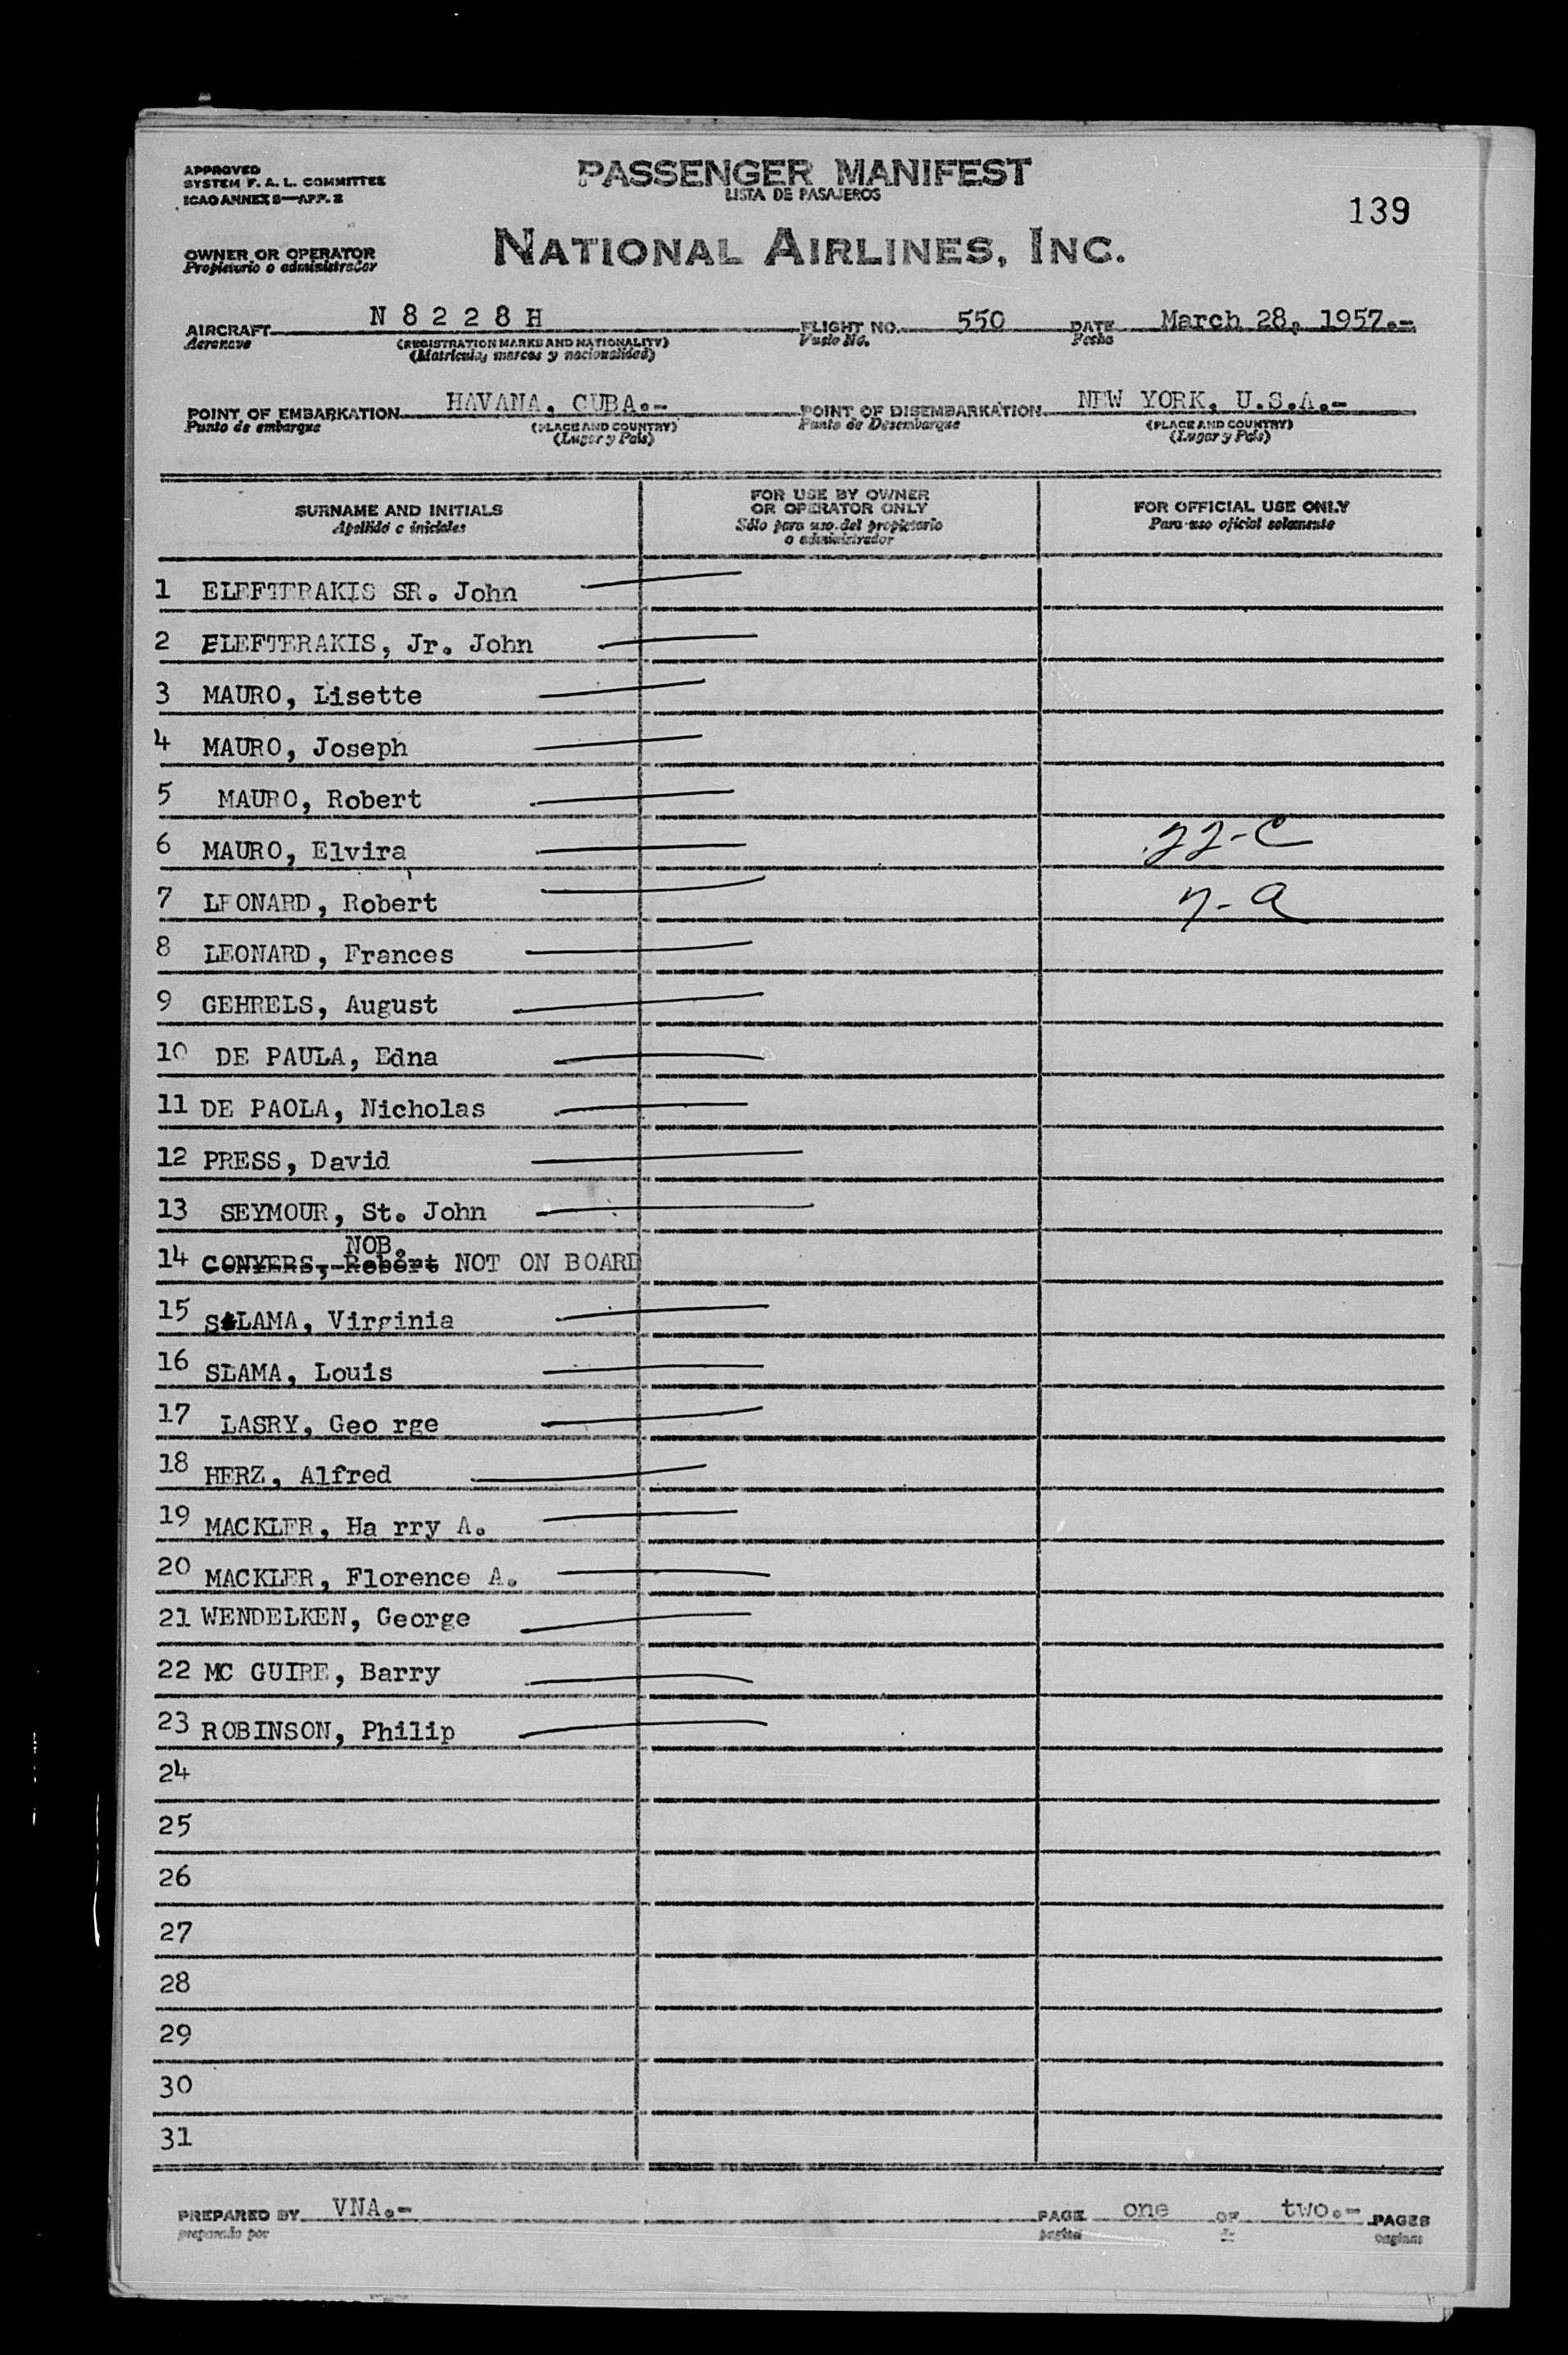 APPROVED
SYSTEM F. A. L. COMMITTEE
ICAO ANNEX 9—APP. 2
PASSENGER MANIFEST
LISTA DE PASAJEROS
139
OWNER OR OPERATOR
Propietario o administrador
NATIONAL AIRLINES, INC.
AIRCRAFT N 8 2 2 8 H FLIGHT NO. 550 DATE March 28, 1957.-
Aeronave (REGISTRATION MARKS AND NATIONALITY) Vuelo No. Fecha
(Matricula, marcas y nacionalidad)
POINT OF EMBARKATION HAVANA, CUBA.- POINT OF DISEMBARKATION NEW YORK, U.S.A.-
Punto de embarque (PLACE AND COUNTRY) Punto de Desembarque (PLACE AND COUNTRY)
(Lugar y País) (Lugar y País)
SURNAME AND INITIALS
Apellido e iniciales
FOR USE BY OWNER
OR OPERATOR ONLY
Sólo para uso del propietario
o administrador
FOR OFFICIAL USE ONLY
Para uso oficial solamente
1 ELEFTERAKIS SR. John
2 ELEFTERAKIS, Jr. John
3 MAURO, Lisette
4 MAURO, Joseph
5 MAURO, Robert
6 MAURO, Elvira
7 LEONARD, Robert
8 LEONARD, Frances
9 GEHRELS, August
10 DE PAULA, Edna
11 DE PAOLA, Nicholas
12 PRESS, David
13 SEYMOUR, St. John
NOB.
14 CONYERS, Robert NOT ON BOARD
15 SLAMA, Virginia
16 SLAMA, Louis
17 LASRY, Geo rge
18 HERZ, Alfred
19 MACKLER, Ha rry A.
20 MACKLER, Florence A.
21 WENDELKEN, George
22 MC GUIRE, Barry
23 ROBINSON, Philip
24
25
26
27
28
29
30
31
PREPARED BY VNA.- PAGE one OF two.- PAGES
preparado por pagina de paginas